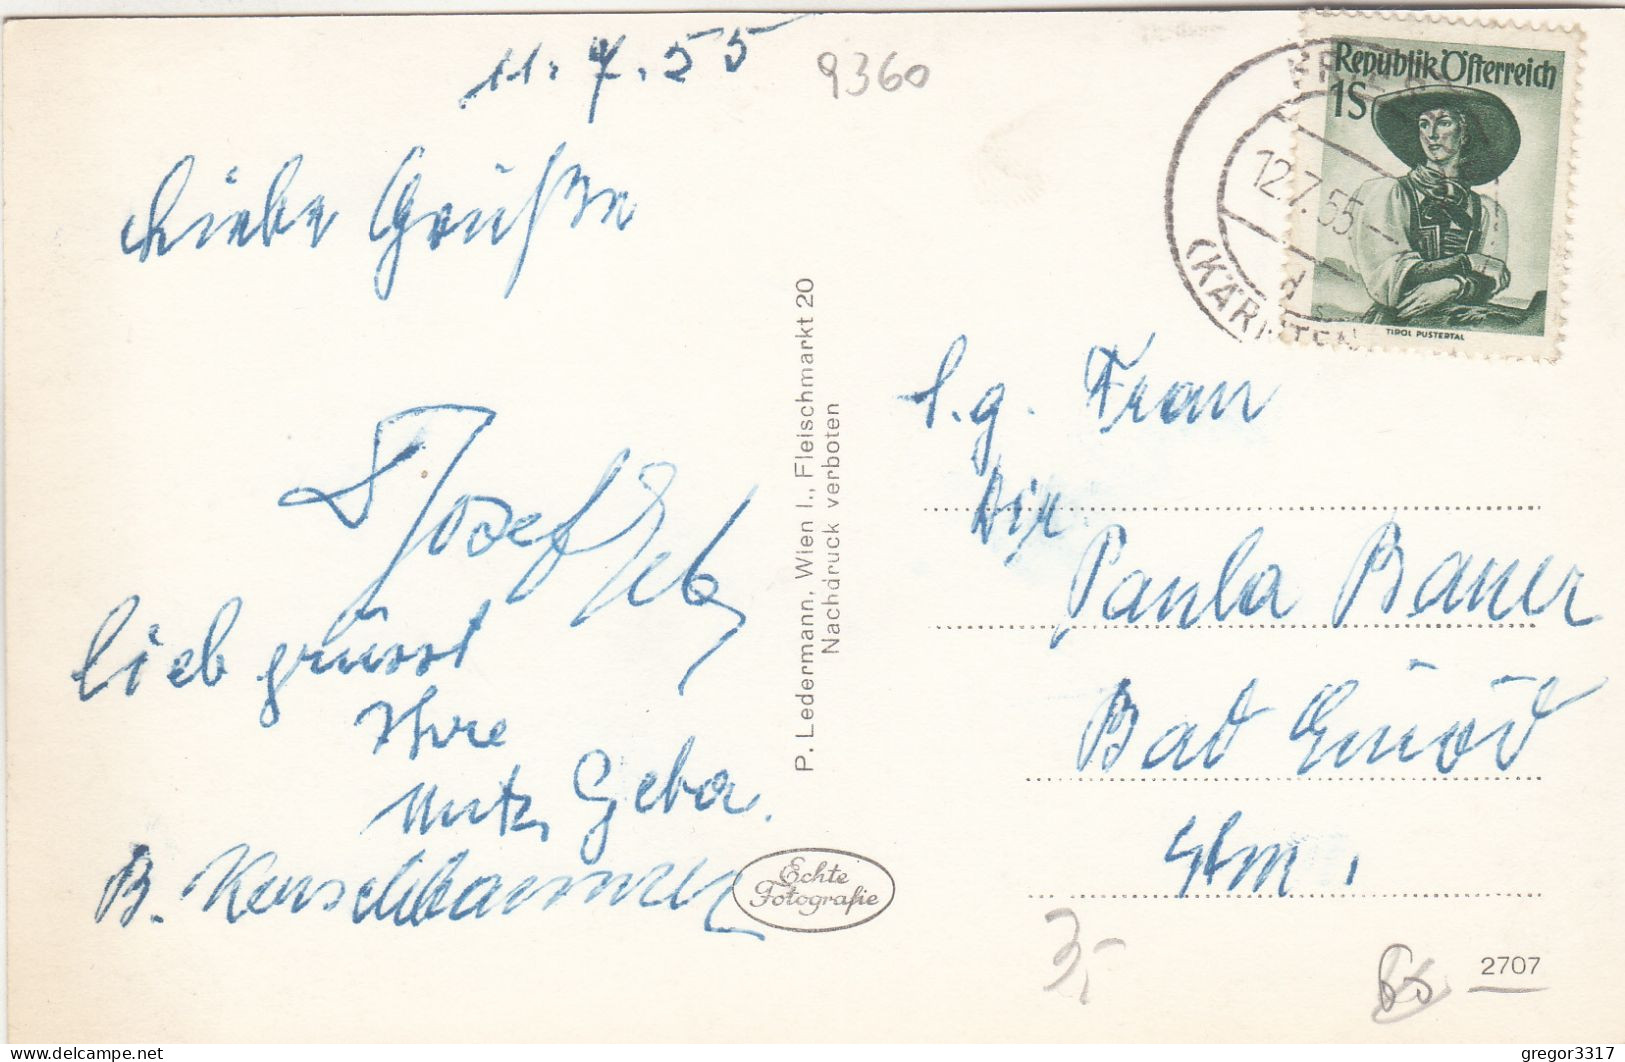 11. 7. 55
9360
Liebe Grüße
Josef
lieb grüsst
Ihre
B. Kerschbaumer
P. Ledermann, Wien I., Fleischmarkt 20
Nachdruck verboten
Echte
Fotografie
Republik Österreich
1S
TIROL PUSTERTAL
12.7.55
(KÄRNTEN
s. g. Frau
Dir
Paula Bauer
Bad Einöd
Stm.
3,-
2707
gregor3317
delcampe.net